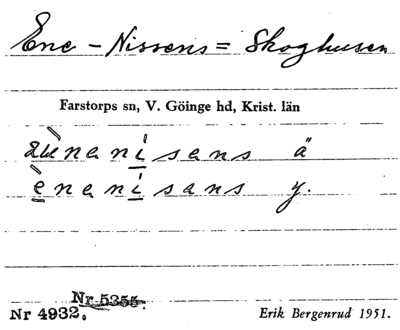 Ene - Nissens = Skoghusen
Farstorps sn, V. Göinge hd, Krist. län
nenisans ä
enenisans y.
Nr 5355.
Nr 4932. Erik Bergenrud 1951.